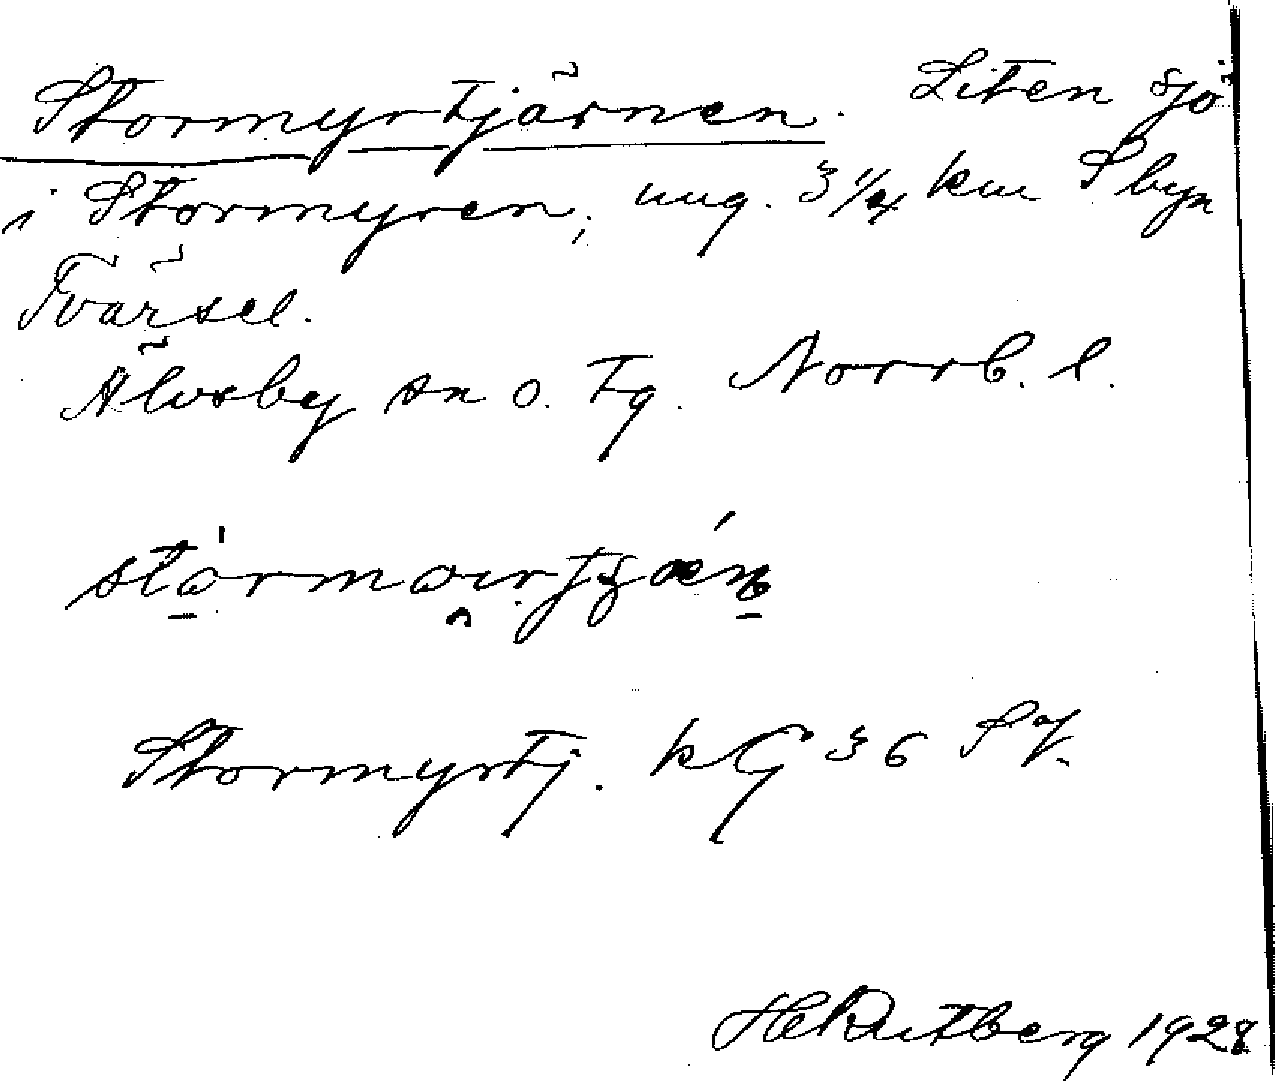 Stormyrtjärnen. Liten sjö
i Stormyren, ung. 3 1/4 km S byn
Tvärsel.
Älvsby sn o. tg. Norrb. l.
Stormyrtj. k G 36 SV.
H Rutberg 1928